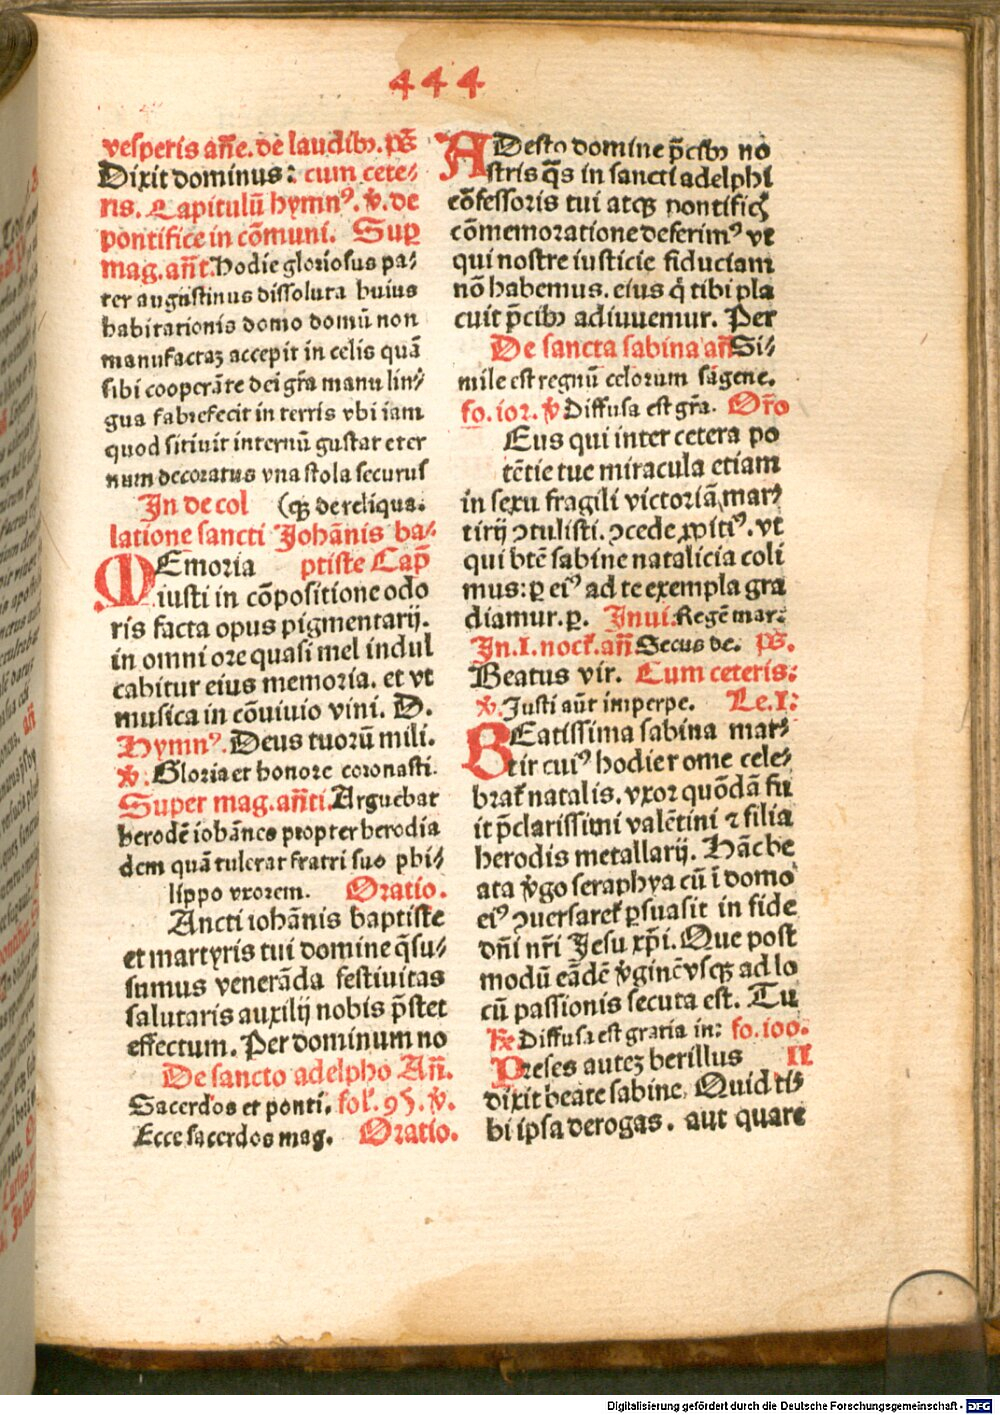 444
vesperis añe. de laudibꝫ. p̄s
Dixit dominus: cum cete-
ris. Capitulū hymnꝰ. v̄. de
pontifice in cōmuni. Suꝑ
mag. añt. Hodie gloriosus pa-
ter augustinus dissoluta huius
habitationis domo domū non
manufactaꝫ accepit in celis quā
sibi cooperāte dei gr̄a manu lin-
gua fabrefecit in terris vbi iam
quod sitiuit internū gustat eter
num decoratus vna stola securus
In decol (qꝫ de reliqua.
latione sancti Johānis ba-
MEmoria ptiste Cap̄
iusti in cōpositione odo
ris facta opus pigmentarij.
in omni ore quasi mel indul
cabitur eius memoria. et vt
musica in cōuiuio vini. D.
Hymnꝰ. Deus tuorū mili.
v̄. Gloria et honore coronasti.
Super mag. añti. Arguebat
herodē iohānes propter herodia
dem quā tulerat fratri suo phi-
lippo vxorem. Oratio.
Ancti iohānis baptiste
et martyris tui domine q̄su-
sumus venerāda festiuitas
salutaris auxilij nobis p̄stet
effectum. Per dominum no
De sancto adelpho Añ.
Sacerdos et ponti. fol. 95. v̄.
Ecce sacerdos mag. Oratio.
ADesto domine p̄cibꝫ no
stris q̄s in sancti adelphi
cōfessoris tui atqꝫ pontificꝭ
cōmemoratione deferimꝰ vt
qui nostre iusticie fiduciam
nō habemus. eius q̄ tibi pla
cuit p̄cibꝫ adiuuemur. Per
De sancta sabina añ Si-
mile est regnū celorum sagene.
fo. 101. v̄ Diffusa est gr̄a. Or̄o
Eus qui inter cetera po
tētie tue miracula etiam
in sexu fragili victoriā mar-
tirij ꝯtulisti. ꝯcede ꝓpitiꝰ. vt
qui btē sabine natalicia coli
mus: ꝑ eiꝰ ad te exempla gra
diamur. ꝑ. Inui. Regē mar.
In. I. noct. añ Secus de. p̄s.
Beatus vir. Cum ceteris:
v̄. Justi aūt imperpe. Le. I:
BEatissima sabina mar-
tir cuiꝰ hodie rome cele-
brat̄ natalis. vxor quōdā fu
it p̄clarissimi valētini ⁊ filia
herodis metallarij. Hāc be
ata v̄go seraphya cū ī domo
eiꝰ ꝯuersaret̄ ꝑsuasit in fide
dn̄i nr̄i Jesu xp̄i. Que post
modū eādē v̄ginē vsqꝫ ad lo
cū passionis secuta est. Tu
R̄ Diffusa est gratia in: fo. 100.
Preses auteꝫ berillus II
dixit beate sabine. Quid ti-
bi ipsa derogas. aut quare
Digitalisierung gefördert durch die Deutsche Forschungsgemeinschaft - DFG